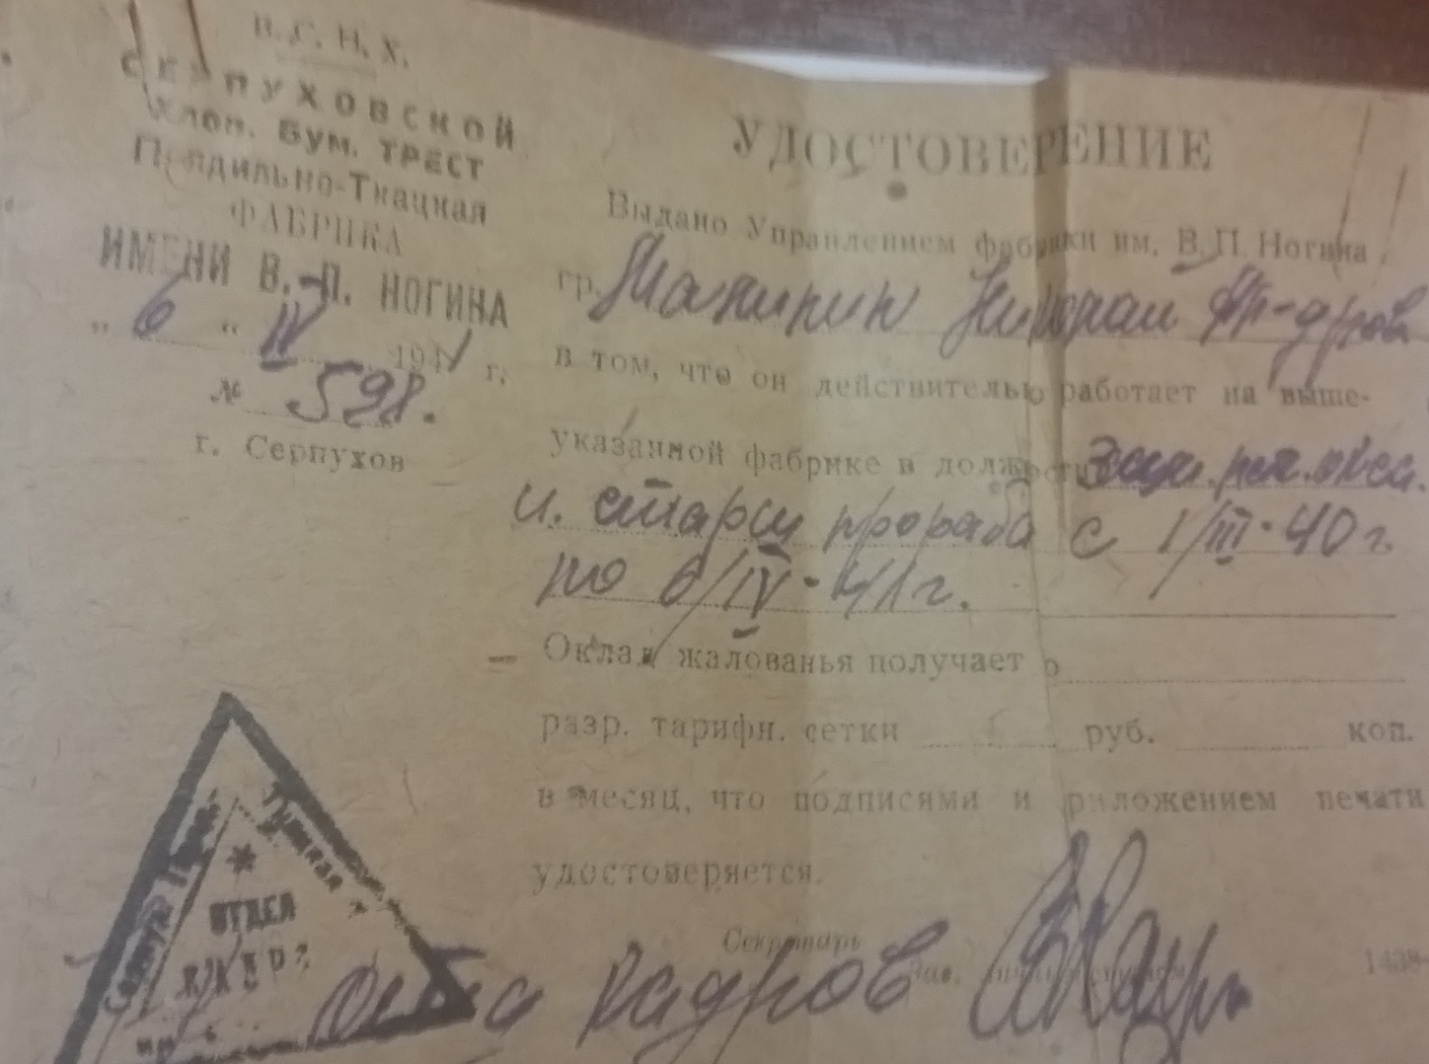 В. С. Н. Х.
СЕРПУХОВСКОЙ
Хлоп. Бум. ТРЕСТ
Прядильно-Ткацкая
ФАБРИКА
ИМЕНИ В. П. НОГИНА
„ 6 “ IV 1941 г.
№ 598.
г. Серпухов
УДОСТОВЕРЕНИЕ
Выдано Управлением фабрики им. В. П. Ногина
гр. Николай
в том, что он действительно работает на выше-
указанной фабрике в должности
и. старш прораба с 1/III-40 г.
по 6/IV-41 г.
Оклад жалованья получает
разр. тарифн. сетки руб. коп.
в месяц, что подписями и риложением печати
удостоверяется.
Секретарь
Зав.
отдела кадров
ОТДЕЛ